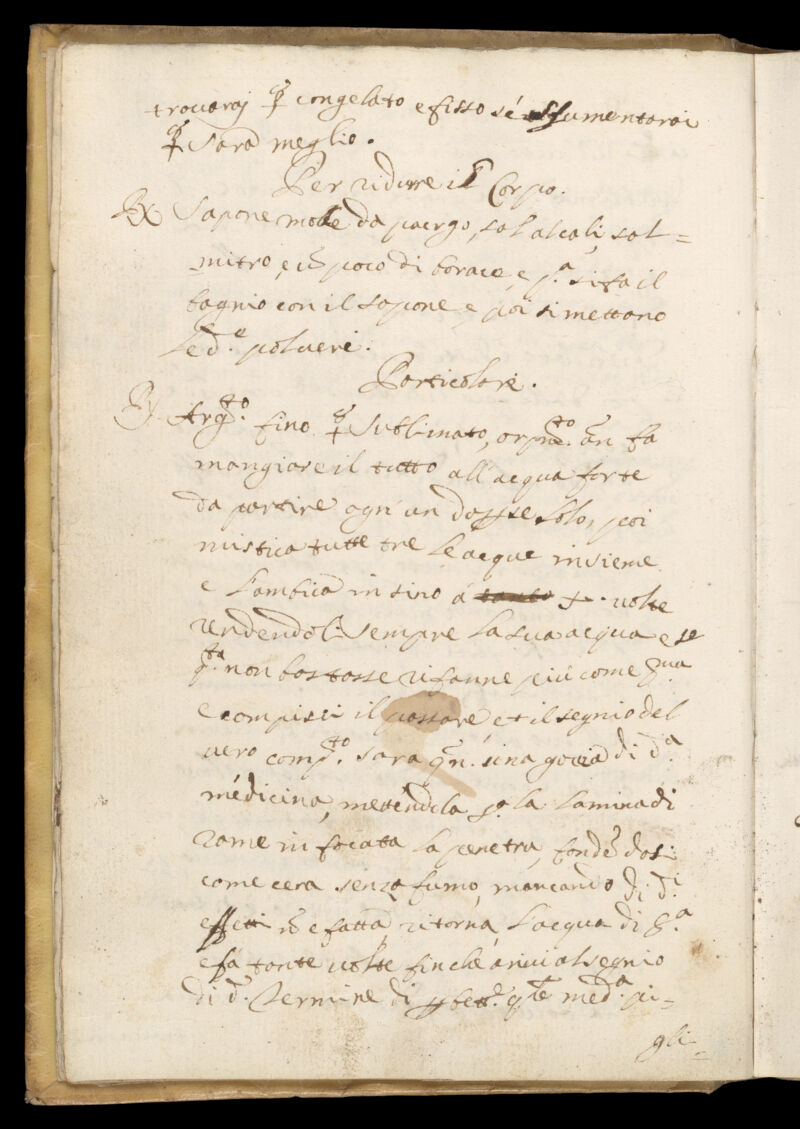 trouaraj ☿ congelato e fisso sé assumentarai
☿ Sara meglio.
Per ridurre il Corpo.
Rx Sapone molle da purgo, sal alcali, sal=
nitro, e ũ poco di borace, e p.ª si fa il
bagnio con il sapone e poi si mettano
le d.e polueri.
Particolare.
Rx. Arg.to fino ☿ Sublimato, orpm.to ãn fa
mangiare il tutto all'acqua forte
da partire ogn'un da sse solo, poi
mistica tutte tre le acque insieme
e Lambica insino á uolte
rendendoli sempre la sua acqua e se
q.ta non bastasse rifanne più come s.ua
e compisci il passare et il segnio del
uero comp.to sara qñ. una goccia di d.ª
médicina, metendola s.ª la lamina di
rame in focata la penetra, fondẽdosi
come cera senza fumo, mancando di d.i
effetti nõ e fatta, ritorna L'acqua di s.ª
e fa tante uolte finche ariui al segnio
di d.º termine di q.te med.ª pi=
gli=